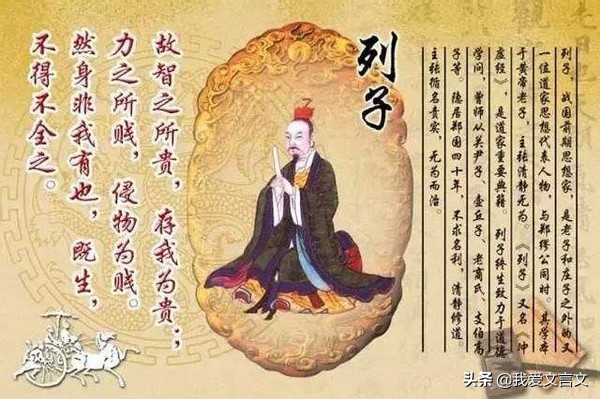 列子，战国前期思想家，是老子和庄子之外的又
一位道家思想代表人物，与郑缪公同时。其学本
于黄帝老子，主张清静无为。《列子》又名《冲
虚经》，是道家重要典籍。列子终生致力于道德
学问，曾师从关尹子、壶丘子、老商氏、支伯高
子等。隐居郑国四十年，不求名利，清静修道。
主张循名责实，无为而治。
列子
故智之所贵，存我为贵；
力之所贱，侵物为贱。
然身非我有也，既生，
不得不全之。
头条 @我爱文言文